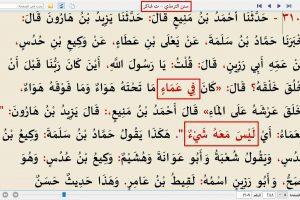 سنن الترمذي - ت شاكر
٣١٠ - حَدَّثَنَا أَحْمَدُ بْنُ مَنِيعٍ قَالَ: حَدَّثَنَا يَزِيدُ بْنُ هَارُونَ قَالَ:
أَخْبَرَنَا حَمَّادُ بْنُ سَلَمَةَ، عَنْ يَعْلَى بْنِ عَطَاءٍ، عَنْ وَكِيعِ بْنِ حُدُسٍ،
عَنْ عَمِّهِ أَبِي رَزِينٍ، قَالَ: قُلْتُ: يَا رَسُولَ اللَّهِ، أَيْنَ كَانَ رَبُّنَا قَبْلَ أَنْ
يَخْلُقَ خَلْقَهُ؟ قَالَ: «كَانَ فِي عَمَاءٍ مَا تَحْتَهُ هَوَاءٌ وَمَا فَوْقَهُ هَوَاءٌ،
وَخَلَقَ عَرْشَهُ عَلَى المَاءِ» قَالَ أَحْمَدُ بْنُ مَنِيعٍ: قَالَ يَزِيدُ بْنُ هَارُونَ: "
العَمَاءُ: أَيْ لَيْسَ مَعَهُ شَيْءٌ ". هَكَذَا يَقُولُ حَمَّادُ بْنُ سَلَمَةَ: وَكِيعُ بْنُ
حُدُسٍ، وَيَقُولُ شُعْبَةُ وَأَبُو عَوَانَةَ وَهُشَيْمٌ: وَكِيعُ بْنُ عُدُسٍ: وَهُوَ
أَصَحُّ، وَأَبُو رَزِينٍ اسْمُهُ: لَقِيطُ بْنُ عَامِرٍ. وَهَذَا حَدِيثٌ حَسَنٌ